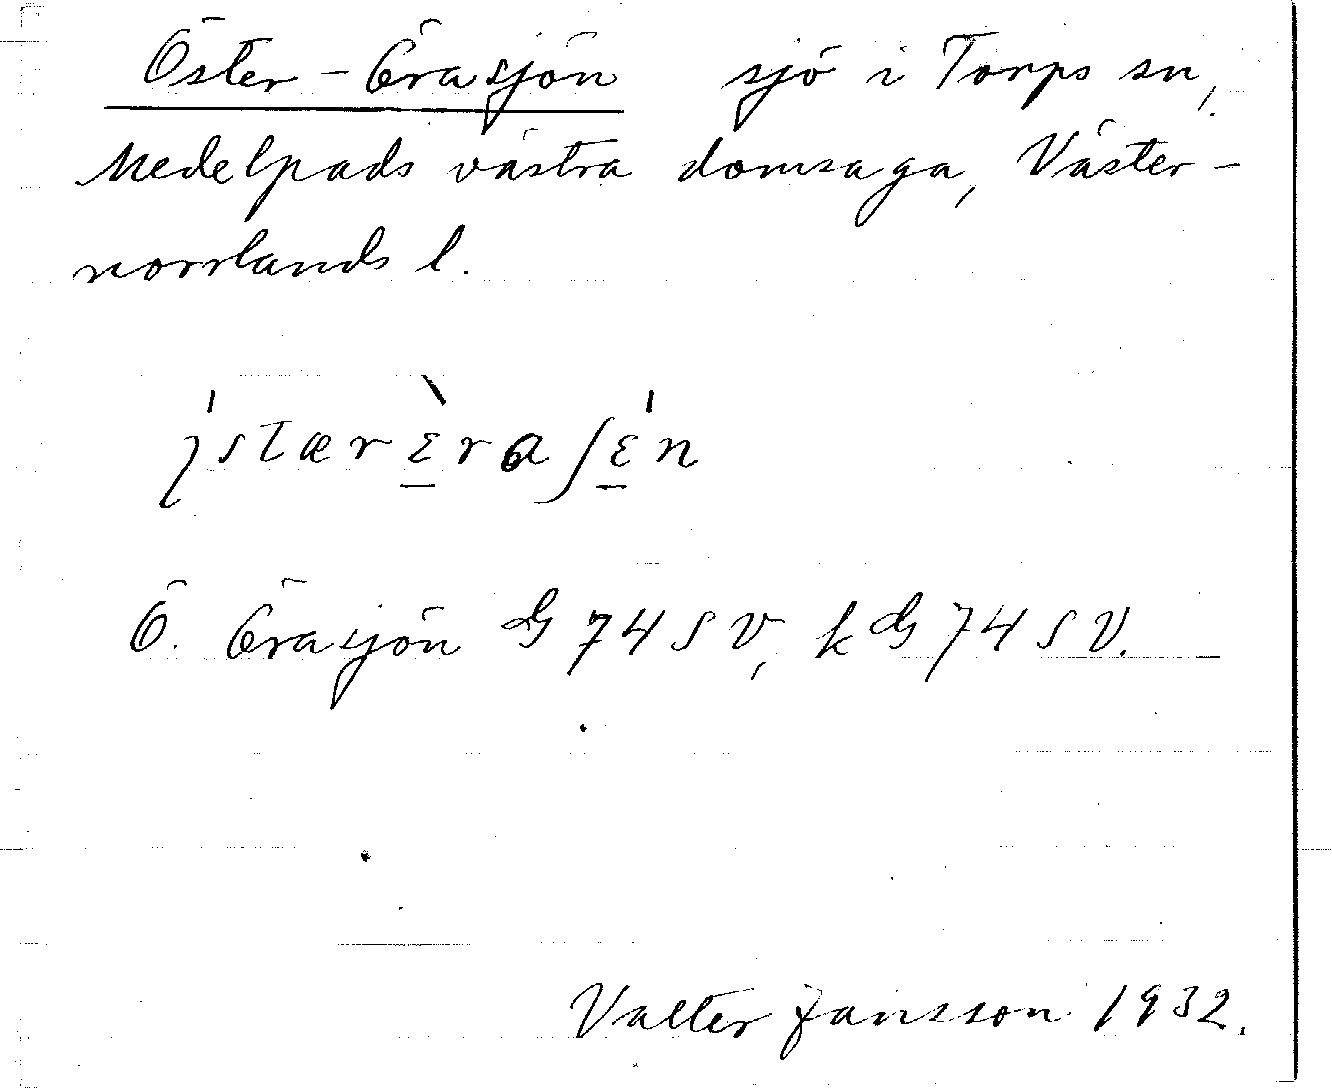 Öster-Örasjön sjö i Torps sn,
Medelpads västra domsaga, Väster-
norrlands l.
Ö. Örasjön G 74 SV, k G 74 SV.
Valter Jansson 1932.